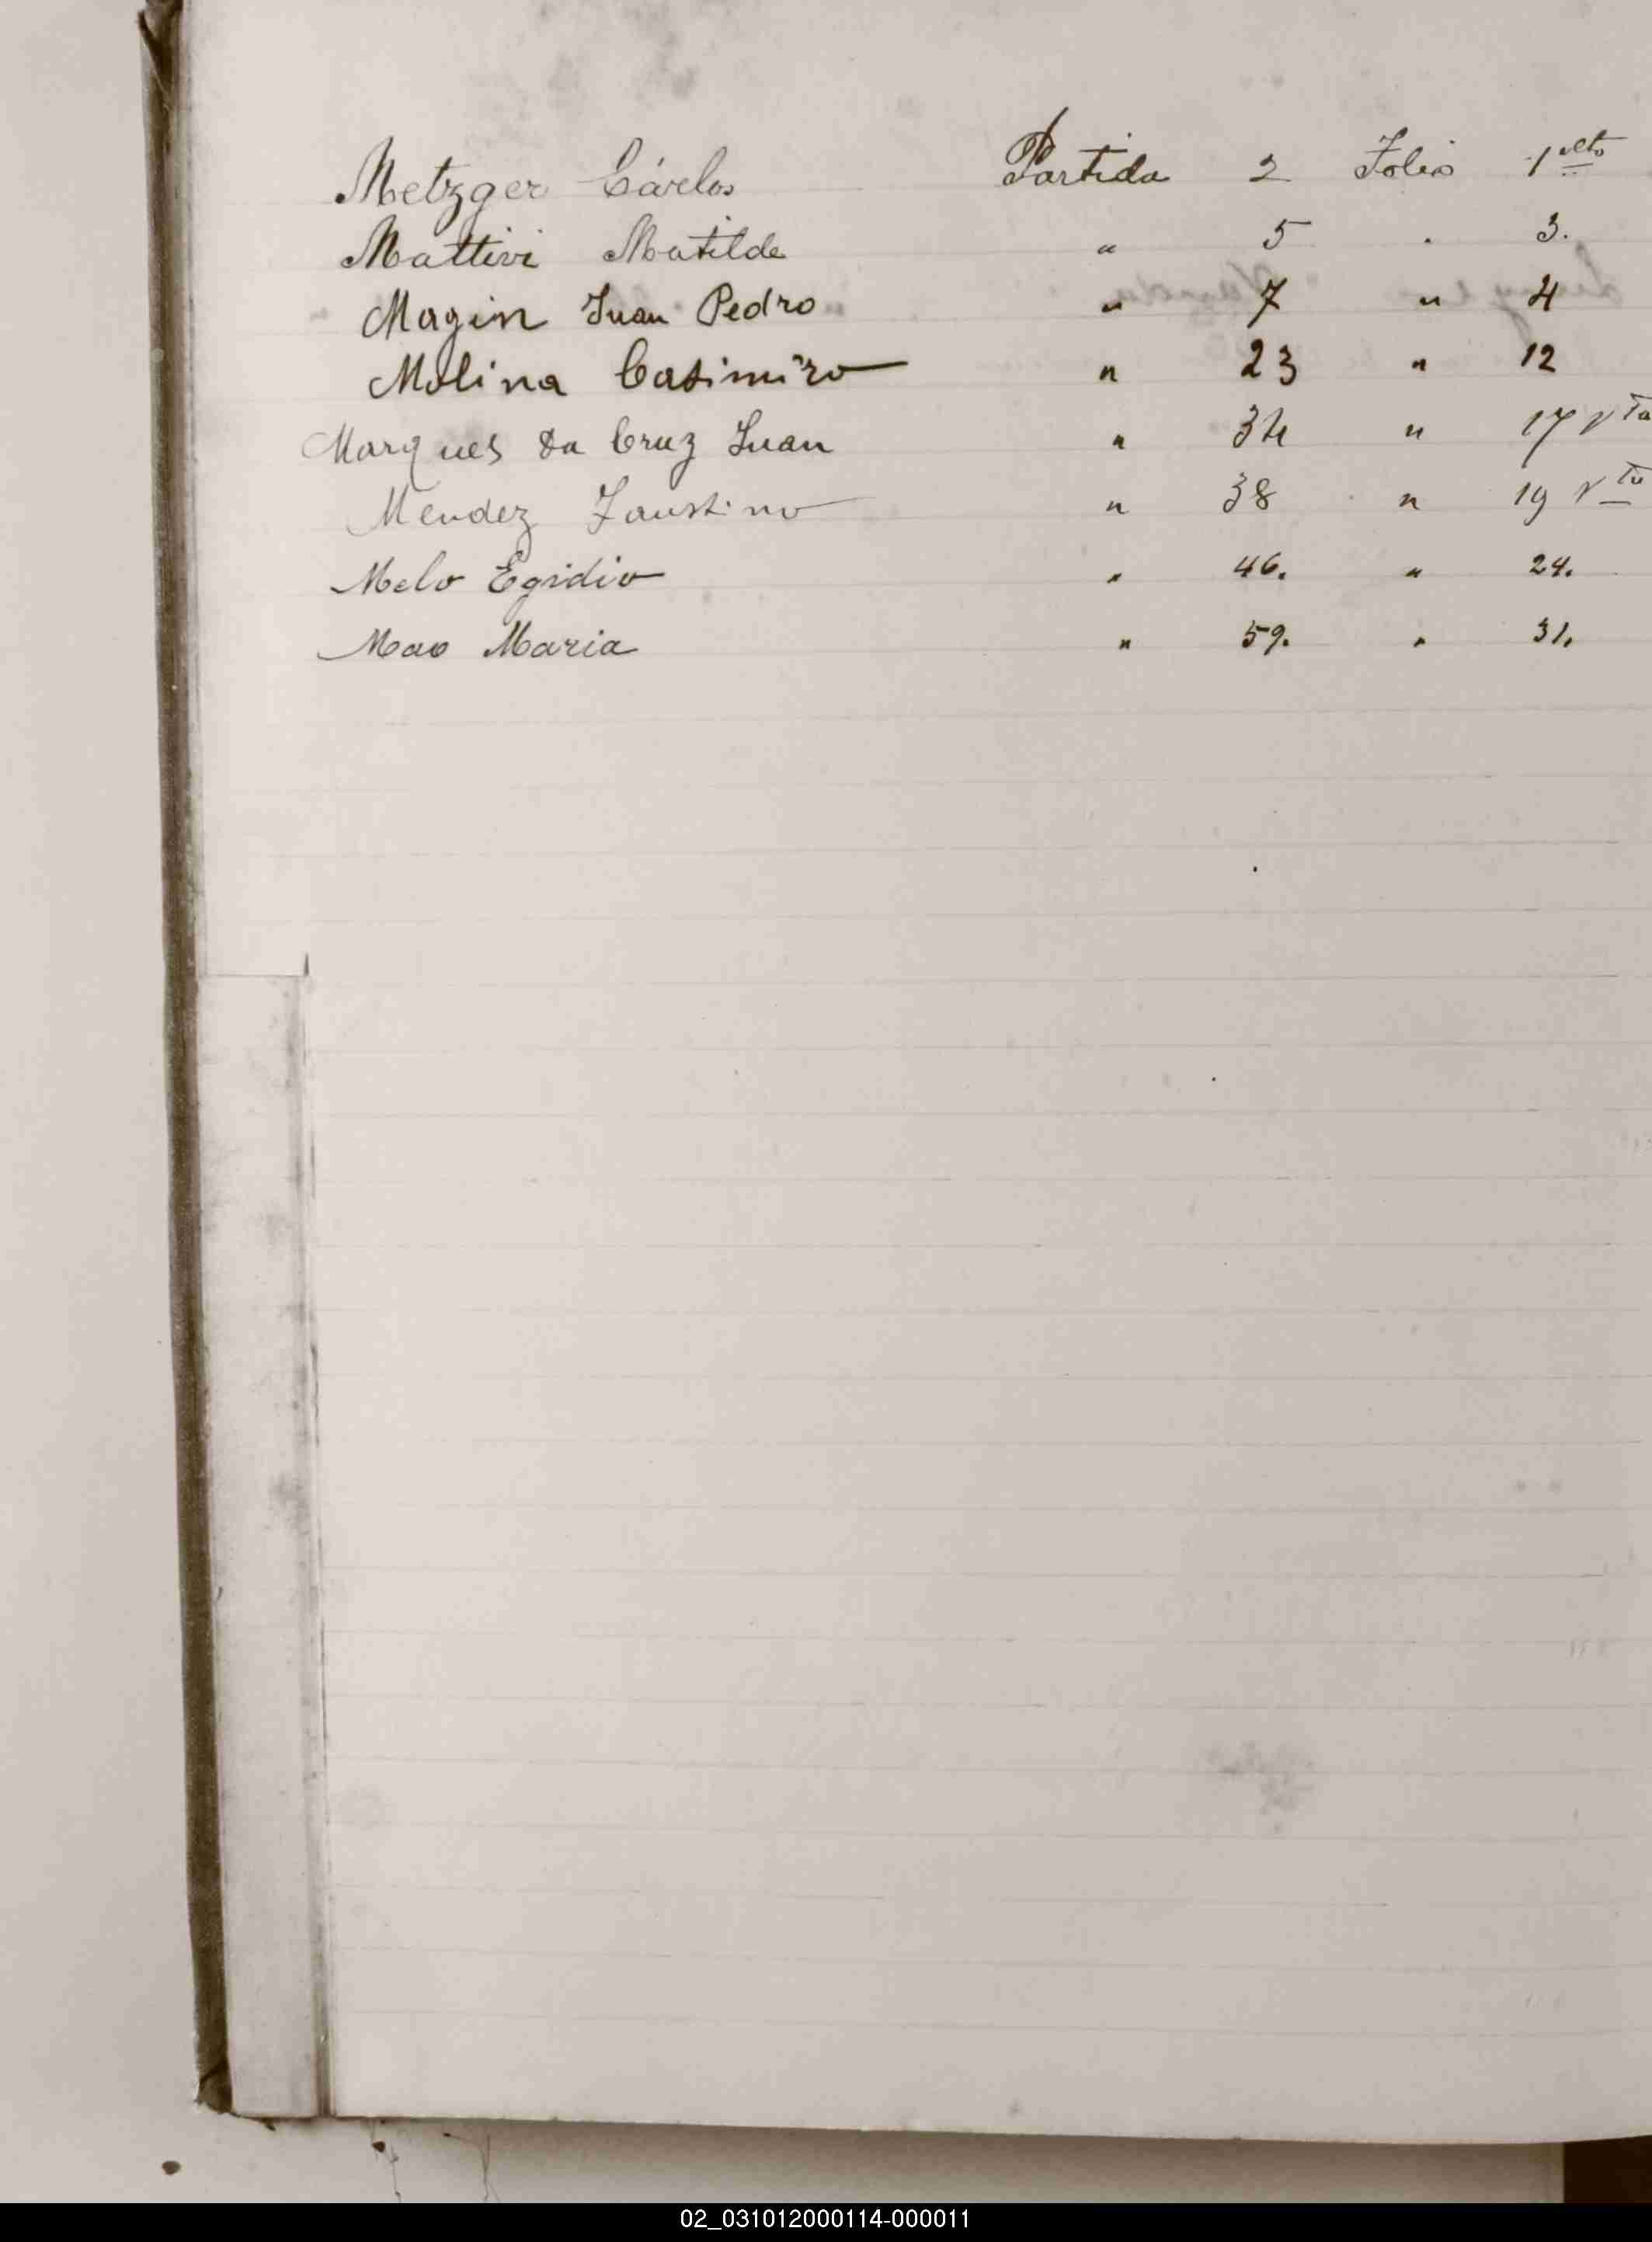 Metzger Cárlos Partida 2 Folio 1 vlto
Mattivi Matilde " 5 " 3.
Magin Juan Pedro " 7 " 4
Molina Casimiro " 23 " 12
Marques da Cruz Juan " 34 " 17 vta
Mendez Faustino " 38 " 19 vta
Melo Egidio " 46. " 24.
Mao Maria " 59. " 31.
02_031012000114-000011